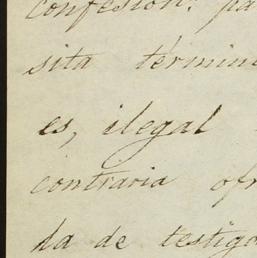 confesion: pa
sita termin
es, ilegal
contraria ofr
da de testigo